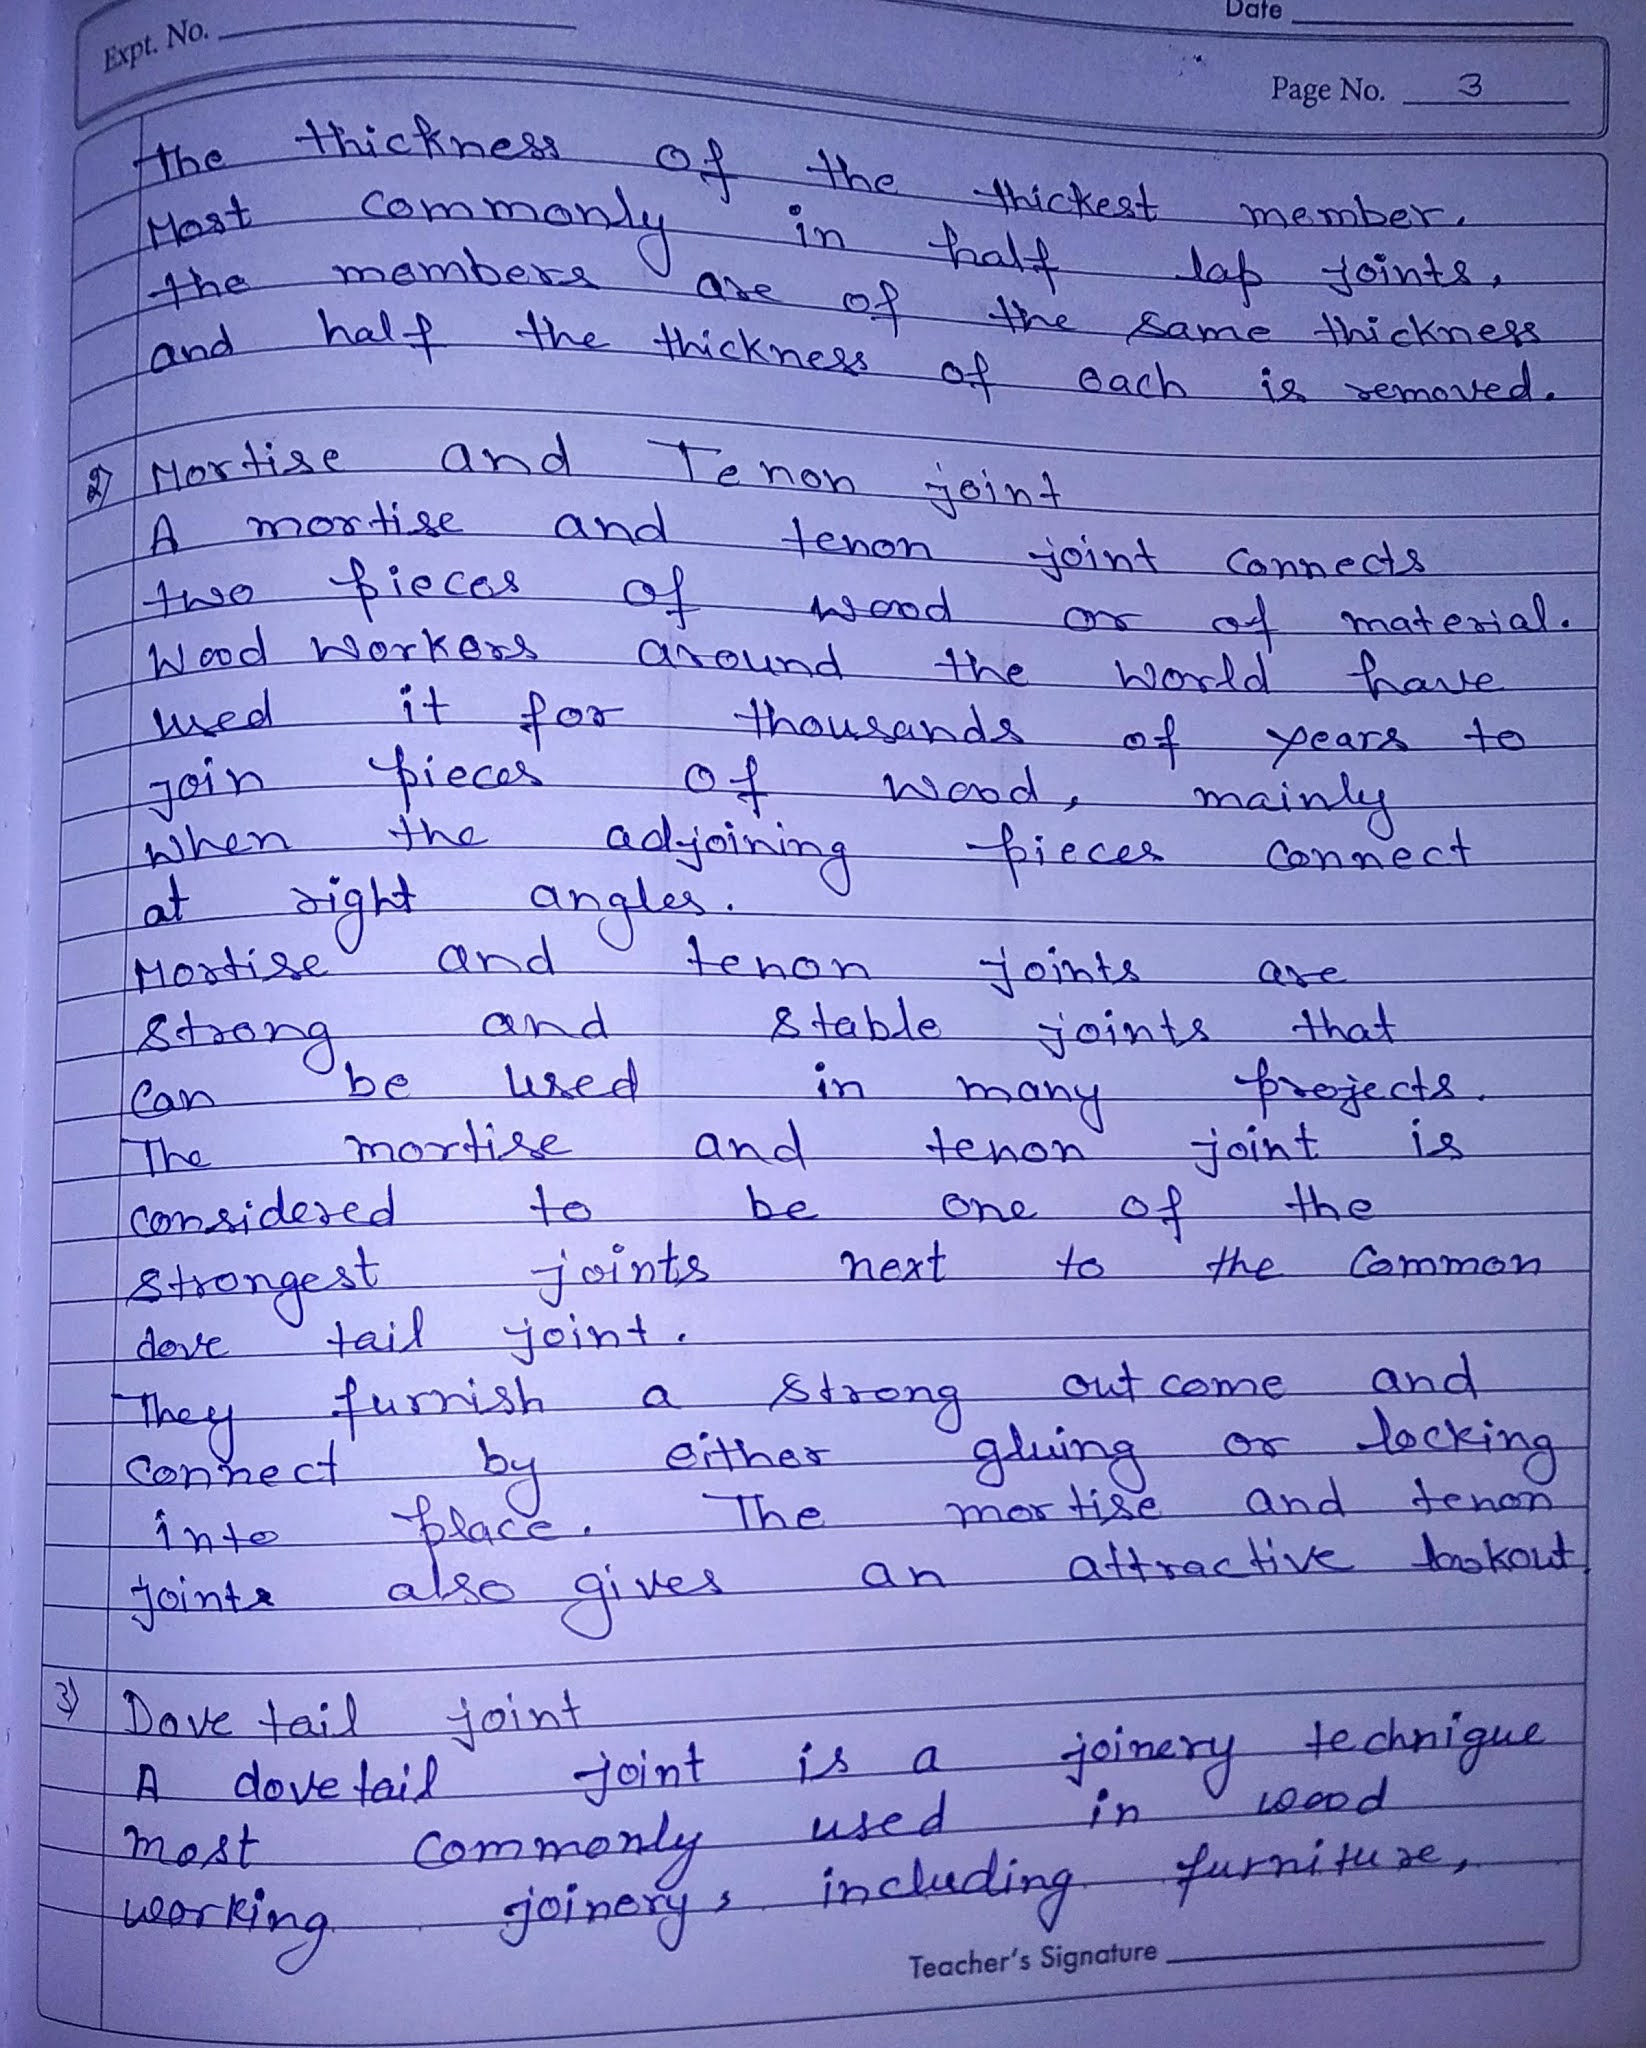 Date
Expt. No.
Page No. 3
the thickness of the thickest member.
Most commonly in half lap joints,
the members are of the same thickness
and half the thickness of each is removed.
2) Mortise and Tenon joint
A mortise and tenon joint connects
two pieces of wood or of material.
Wood workers around the world have
used it for thousands of years to
join pieces of wood, mainly
when the adjoining pieces connect
at right angles.
Mortise and tenon joints are
strong and stable joints that
can be used in many projects.
The mortise and tenon joint is
considered to be one of the
strongest joints next to the common
dove tail joint.
They furnish a strong outcome and
connect by either gluing or locking
into place. The mortise and tenon
joints also gives an attractive lookout.
3) Dove tail joint
A dovetail joint is a joinery technique
most commonly used in wood
working joinery, including furniture,
Teacher's Signature